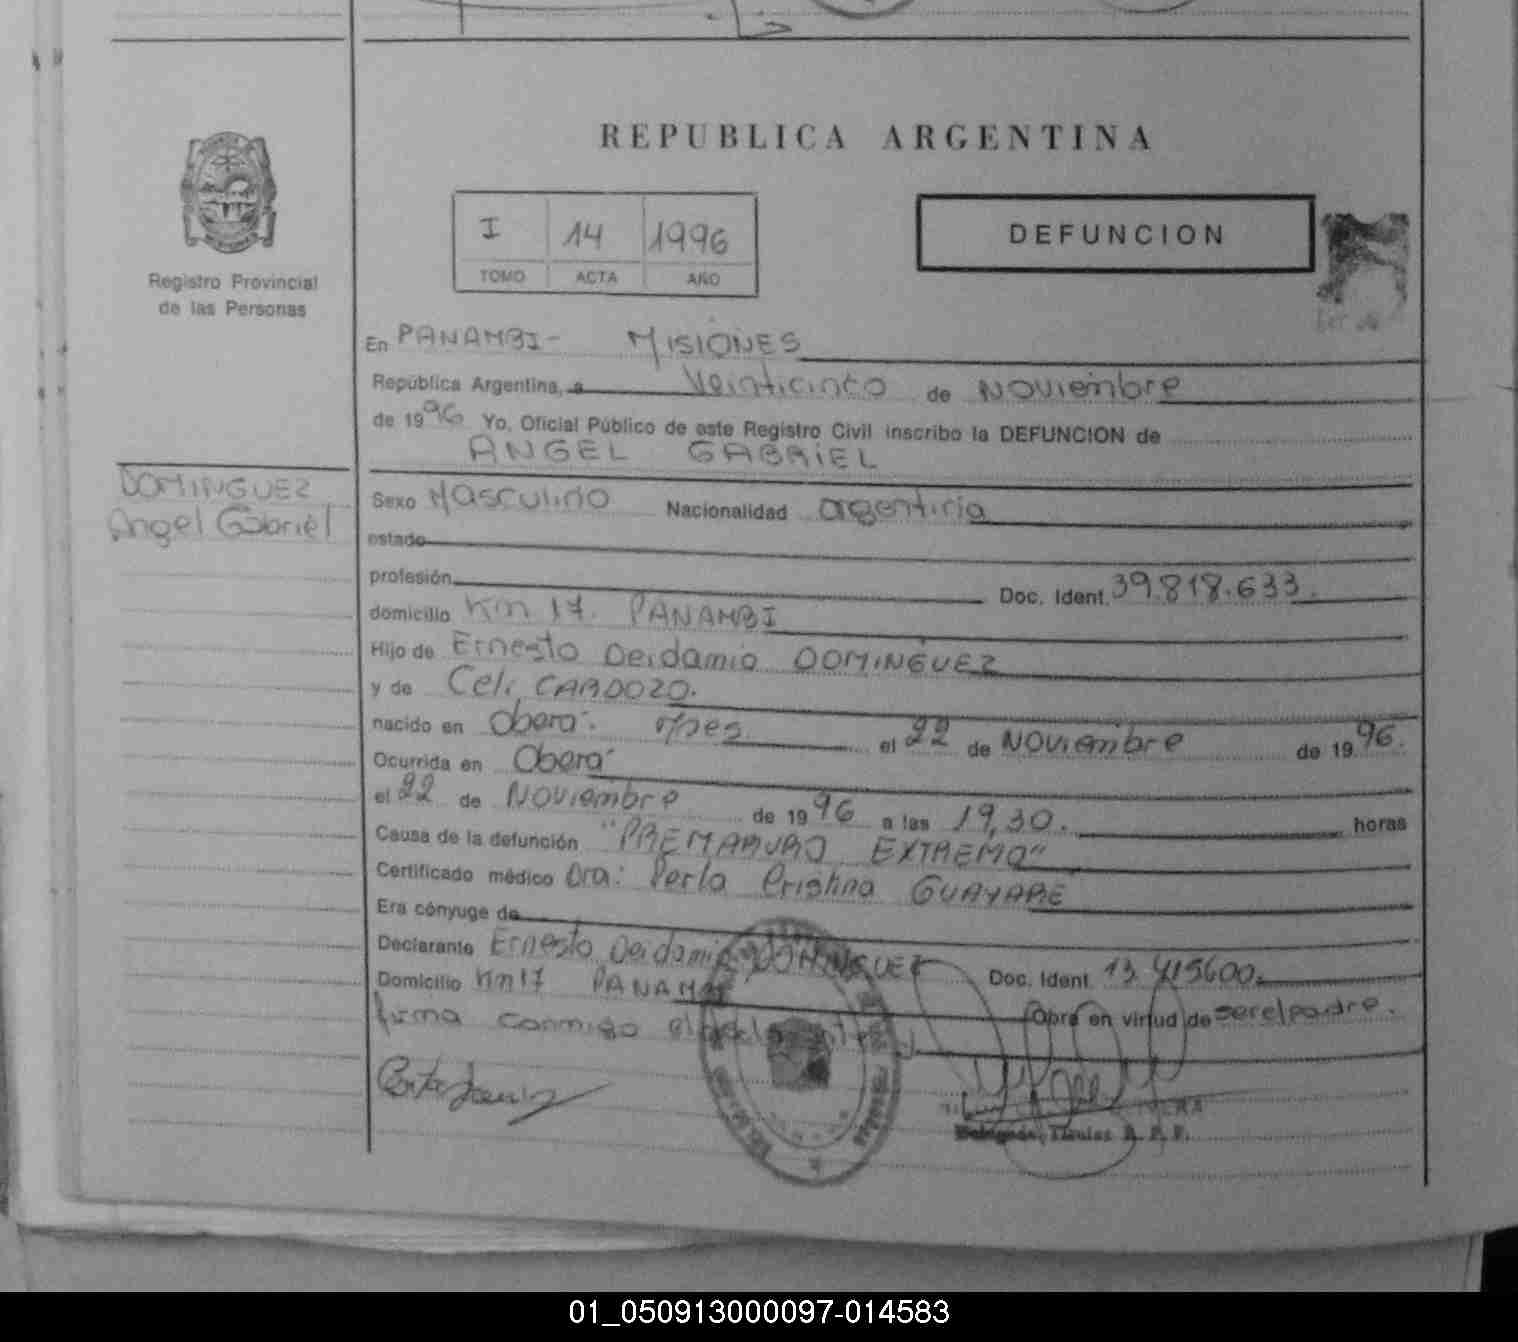 REPUBLICA ARGENTINA
I 14 1996
TOMO ACTA AÑO
DEFUNCION
Registro Provincial
de las Personas
En PANAMBI- MISIONES
República Argentina, a Veinticinco de Noviembre
de 1996 Yo, Oficial Público de este Registro Civil inscribo la DEFUNCION de
ANGEL GABRIEL
DOMINGUEZ
Angel Gabriel
Sexo Masculino Nacionalidad argentina
estado
profesión Doc. Ident. 39.818.633.
domicilio Km 17. PANAMBI
Hijo de Ernesto Deidamio DOMINGUEZ
y de Celi CARDOZO.
nacido en Oberá: el 22 de Noviembre de 1996.
Ocurrida en Oberá
el 22 de Noviembre de 1996 a las 19,30. horas
Causa de la defunción "PREMARURO EXTREMO"
Certificado médico Dra: Perla Cristina GUAYARE
Era cónyuge de
Declarante Ernesto Deidamio DOMINGUEZ Doc. Ident. 13.415600.
Domicilio Km 17 PANAMBI Obra en virtud de ser el padre.
firma conmigo el
01_050913000097-014583